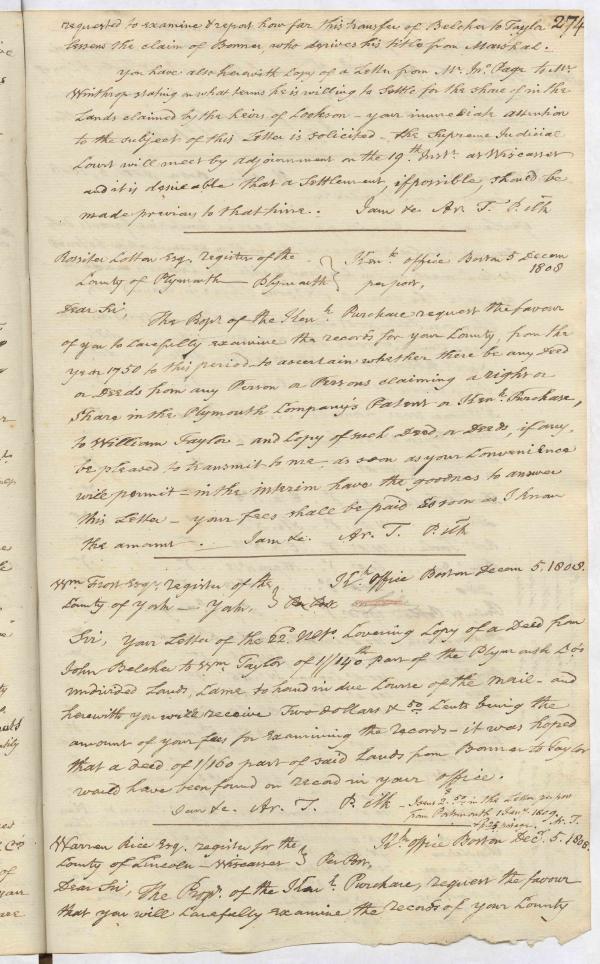 274
requested to examine & report how far this transfer of Belcher to Taylor
lessens the claim of Bonner, who derives his title from Marshal.
You have also herewith Copy of a Letter from Mr. Jno. Page to Mr.
Winthrop stating on what terms he is willing to Settle for the share of in the
Lands claimed by the heirs of Jackson – your immediate attention
to the subject of this Letter is solicited – the Supreme Judicial
Court will meet by adjournment on the 19th Inst. at Wiscasset
and it is desireable that a Settlement, if possible, should be
made previous to that time. I am &c. Ar. T. P. clk
Rossiter Cotton Esq. register of the
County of Plymouth – Plymouth
Kenk. office Boston 5 Decem 1808
per post,
Dear Sir, The Propt. of the Kenk. Purchase request the favour
of you to Carefully examine the records for your County, from the
year 1750 to this period to ascertain whether there be any Deed
or Deeds from any Person or Persons claiming a right or
Share in the Plymouth Company's Patent or Kenk. Purchase,
to William Taylor – and Copy of such Deed, or Deeds, if any,
be pleased to transmit to me as soon as your Convenience
will permit – in the interim have the goodness to answer
this Letter – your fees shall be paid so soon as I know
the amount. I am &c. Ar. T. P. clk
Wm Frost Esq. register of the
County of York – York,
Kk. office Boston Decem 5. 1808.
Per Post
Sir, Your Letter of the 22d. Ulto. Covering Copy of a Deed from
John Belcher to Wm Taylor of 1/140th part of the Plymouth Co's
undivided Lands, Came to hand in due Course of the mail – and
herewith you will receive Two dollars & 50 Cents being the
amount of your fees for examining the records – it was hoped
that a deed of 1/160 part of said Lands from Bonner to Taylor
would have been found on record in your office.
I am &c. Ar. T. P. clk – 2.50 in the Letter per post
from Portsmouth 1 Jany. 1809.
A. T.
Warren Rice Esq. register for the
County of Lincoln – Wiscasset
Kk. office Boston Dec. 5. 1808.
Per Post,
Dear Sir, The Propt. of the Kenk. Purchase, request the favour
that you will Carefully examine the records of your County